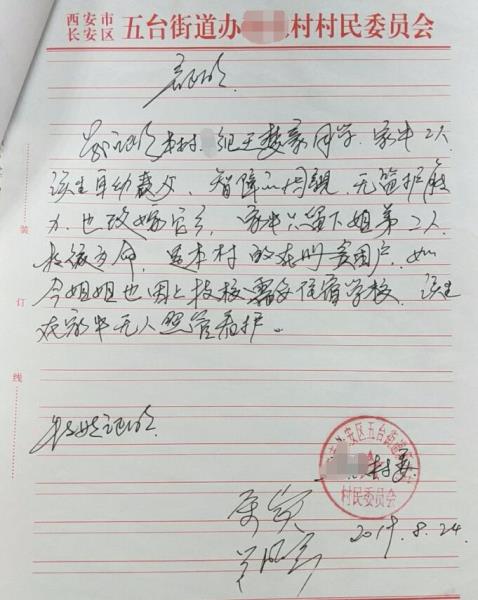 西安市
长安区 五台街道办 村村民委员会
证明
兹证明本村 组王 同学,家中2人
该生年幼丧父,智障的母亲,无监护能
力,也改嫁他乡,家中只留下姐弟2人
相依为命,是本村的在册贫困户,如
今姐姐也因上技校需要住宿学校,该生
在家中无人照管看护。
特此证明
装
订
线
安区五台街道
村民委员会
村委
2019.8.24